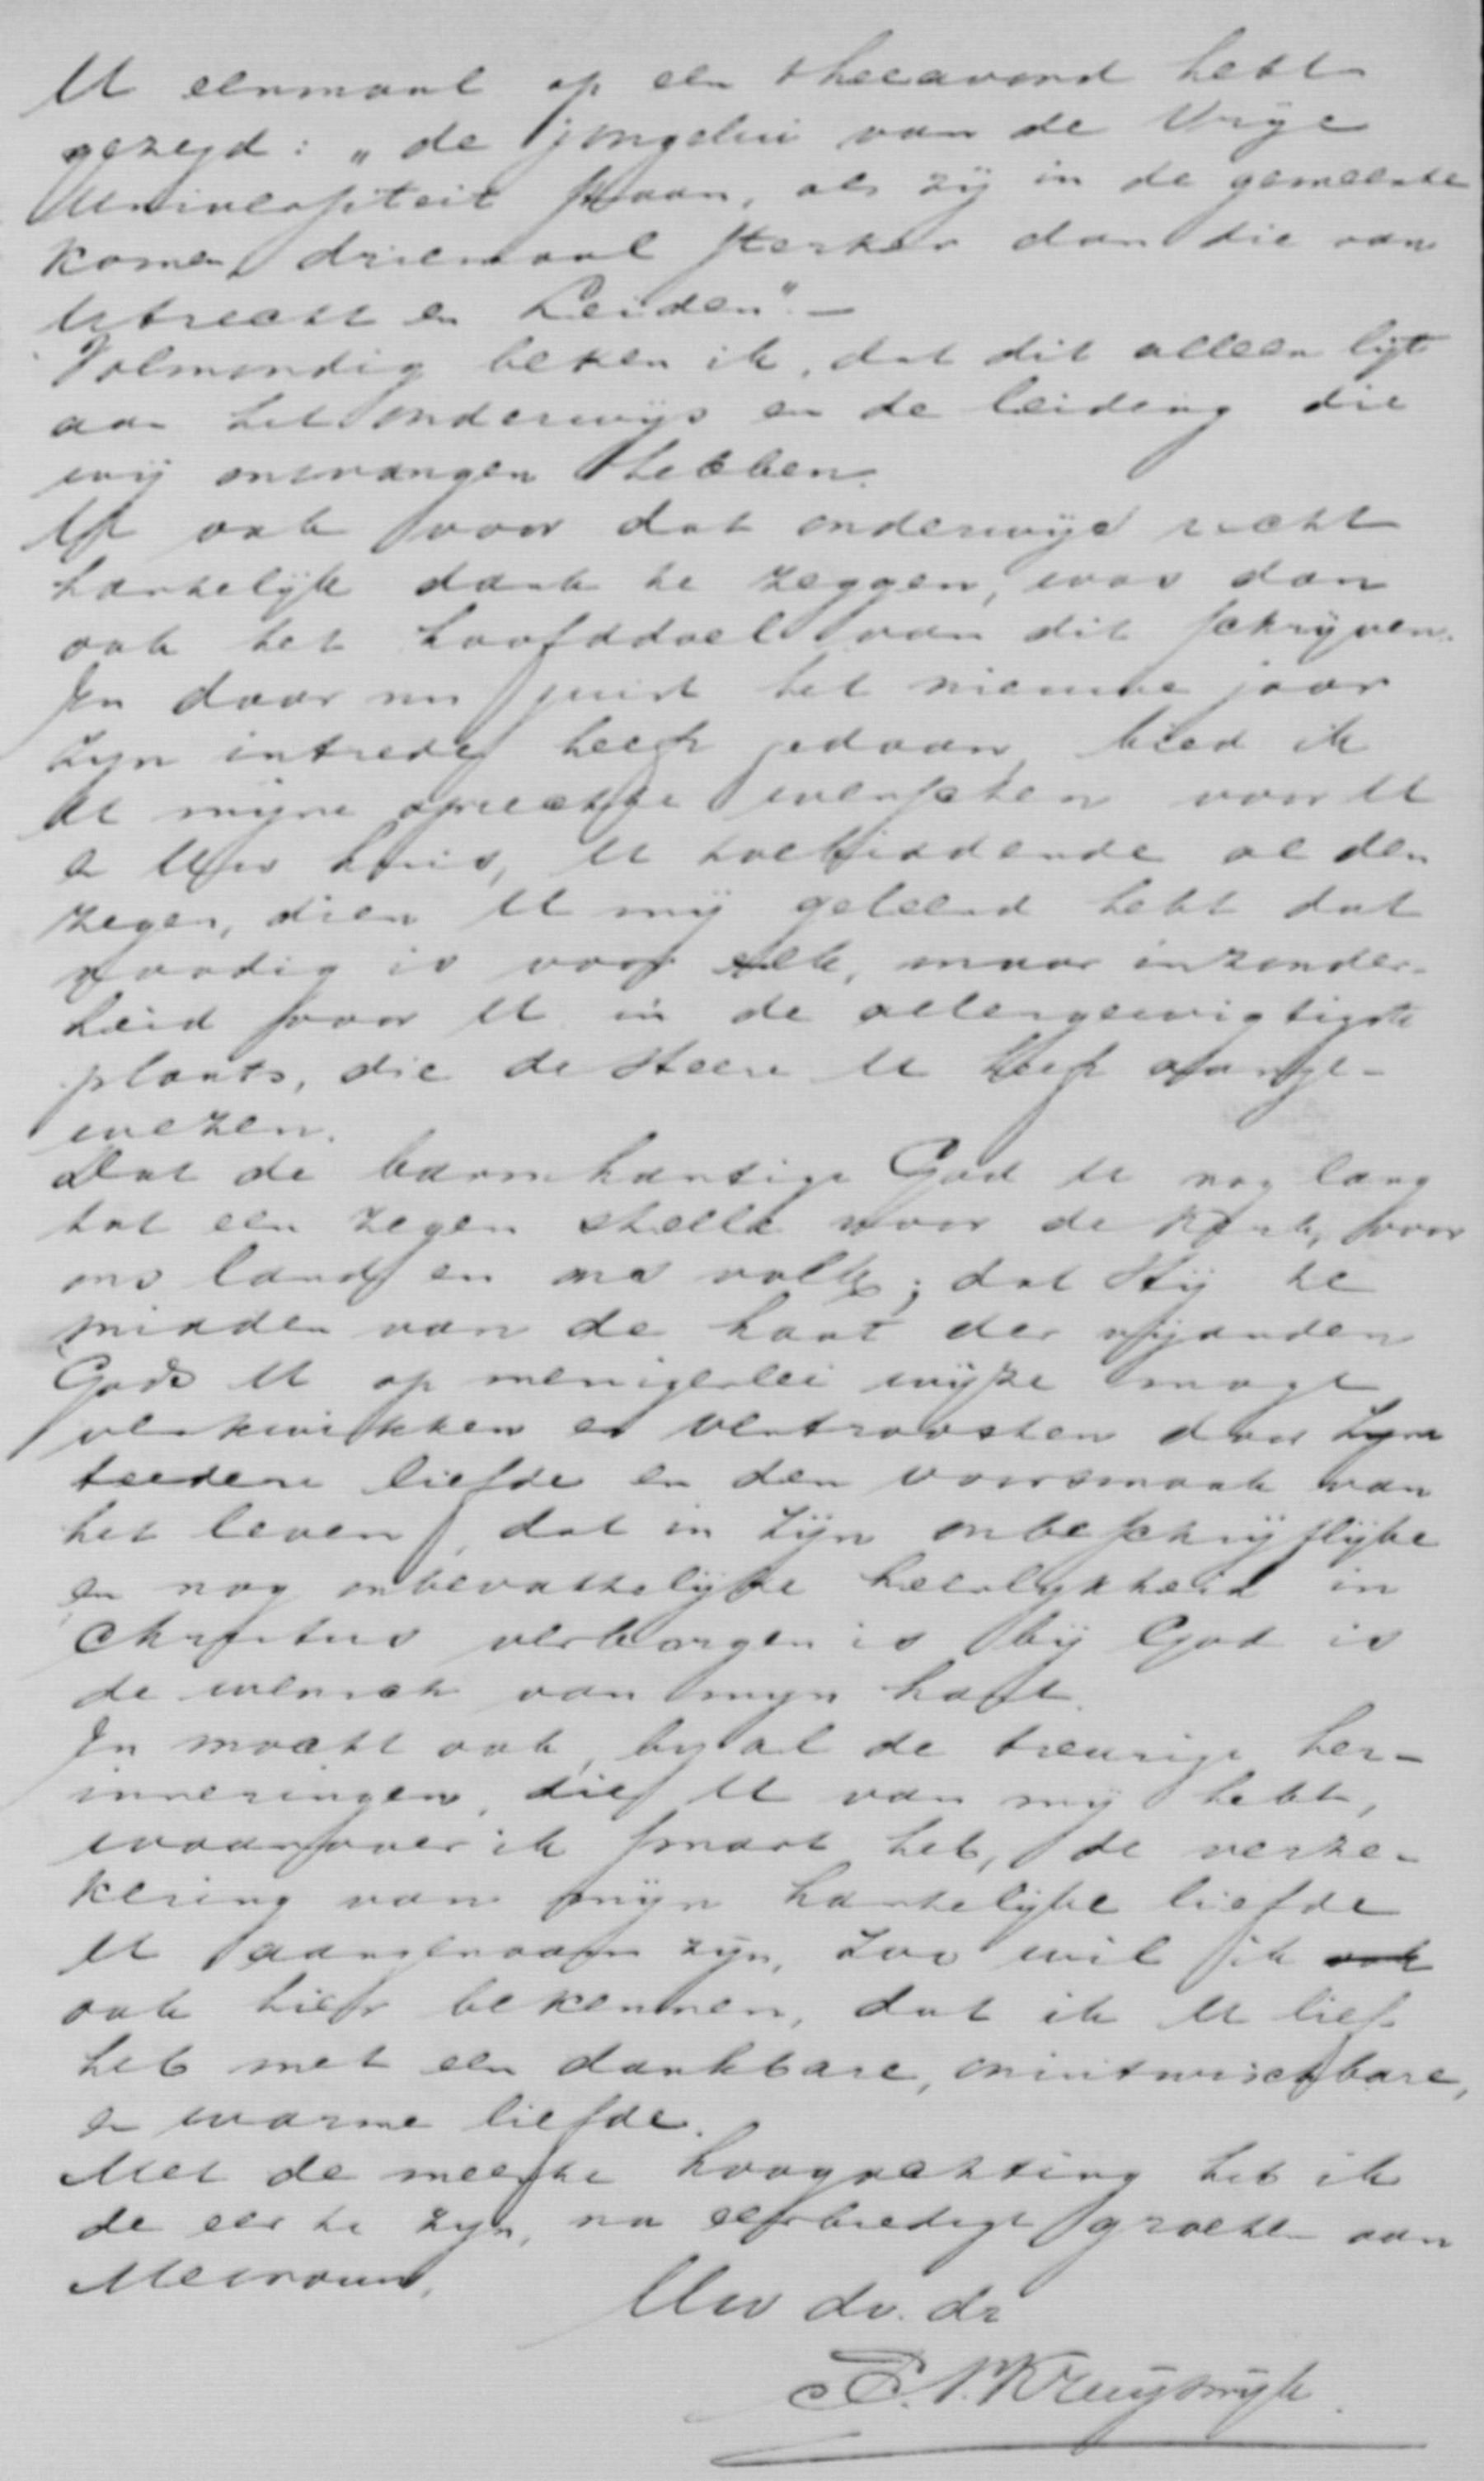 U eenmaal op een theeavond hebt
gezegd: „de jongelui van de Vrije
Universiteit staan, als zij in de gemeente
komen driemaal sterker dan die van
Utrecht en Leiden". —
Volmondig beken ik, dat dit alleen ligt
aan het onderwijs en de leiding die
wij ontvangen hebben.
U ook voor dat onderwijs recht
hartelijk dank te zeggen, was dan
ook het hoofddoel van dit schrijven.
En daar nu juist het nieuwe jaar
zijn intrede heeft gedaan, bied ik
U mijne oprechte wenschen voor U
en Uw huis, U toebiddende al den
zegen, dien U mij geleerd hebt dat
noodig is voor elk, maar inzonder-
heid voor U in de allergewigtigste
plaats, die de Heere U heeft aange-
wezen.
Dat de barmhartige God U nog lang
tot een zegen stelle voor de kerk, voor
ons land en ons volk; dat Hij te
midden van de haat der vijanden
Gods U op menigerlei wijze moge
verkwikken en vertroosten door Zijne
teedere liefde en den voorsmaak van
het leven, dat in zijn onbeschrijflijke
en nog onbevattelijke heerlijkheid in
Christus verborgen is bij God is
de wensch van mijn hart.
En mocht ook, bij al de treurige her-
inneringen, die U van mij hebt,
waarover ik smart heb, de verze-
kering van mijn hartelijke liefde
U aangenaam zijn, zoo wil ik ook
ook hier bekennen, dat ik U lief
heb met een dankbare, onuitwischbare,
en warme liefde.
Met de meeste hoogachting heb ik
de eer te zijn, na eerbiedige groete aan
Mevrouw,
Uw dv. dr
P. N. Kruyswijk.